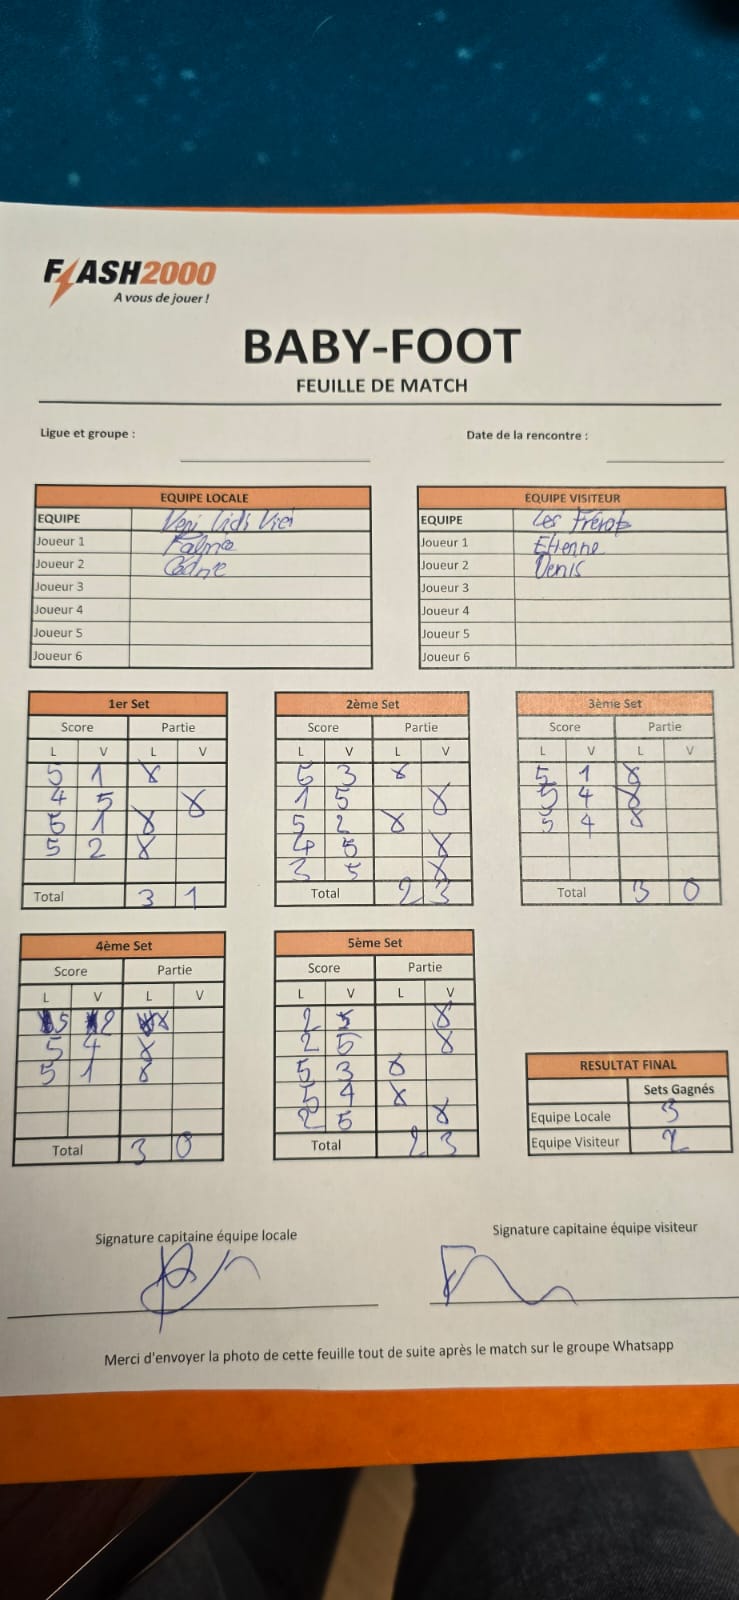 FLASH2000
A vous de jouer !
BABY-FOOT
FEUILLE DE MATCH
Ligue et groupe :
Date de la rencontre :
EQUIPE LOCALE
EQUIPE Veni Vidi Vici
Joueur 1
Joueur 2
Joueur 3
Joueur 4
Joueur 5
Joueur 6
EQUIPE VISITEUR
EQUIPE Les Frérots
Joueur 1 Etienne
Joueur 2 Denis
Joueur 3
Joueur 4
Joueur 5
Joueur 6
1er Set
Score Partie
L V L V
5 1 X
4 5 X
5 1 X
5 2 X
Total 3 1
2ème Set
Score Partie
L V L V
5 3 X
1 5 X
5 2 X
4 5 X
3 5 X
Total 2 3
3ème Set
Score Partie
L V L V
5 1 X
5 4 X
5 4 X
Total 3 0
4ème Set
Score Partie
L V L V
5 2 X
5 4 X
5 1 X
Total 3 0
5ème Set
Score Partie
L V L V
2 5 X
2 5 X
5 3 X
5 4 X
2 5 X
Total 2 3
RESULTAT FINAL
Sets Gagnés
Equipe Locale 3
Equipe Visiteur 2
Signature capitaine équipe locale
Signature capitaine équipe visiteur
Merci d'envoyer la photo de cette feuille tout de suite après le match sur le groupe Whatsapp